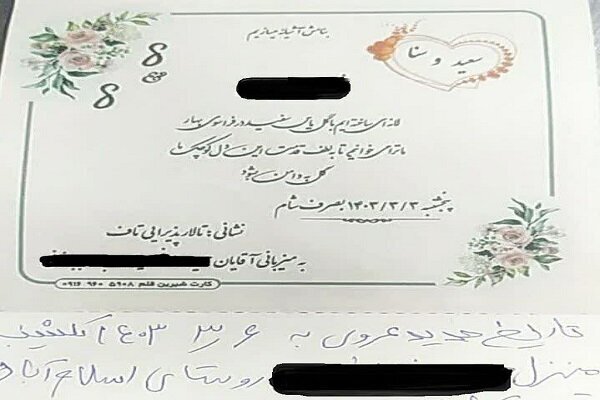 بنامش آشیانه میسازیم
سعید و سنا
S & S
لانه ای ساخته ایم با گل یاس سفید در فراسوی بهار
ما ترا می خوانیم تا به لطف قدمت این دل کوچک ما
گل به دامن بشود
پنجشنبه ۱۴۰۳/۳/۳ بصرف شام
نشانی : تالار پذیرایی تاف
به میزبانی آقایان
کارت شیرین قلم ۵۹۰۸ ۹۶۰ ۰۹۱۶
تاریخ جدید عروسی به ۱۴۰۳ ۳/۶ یکشنبه
منزل روستای اسلام آباد